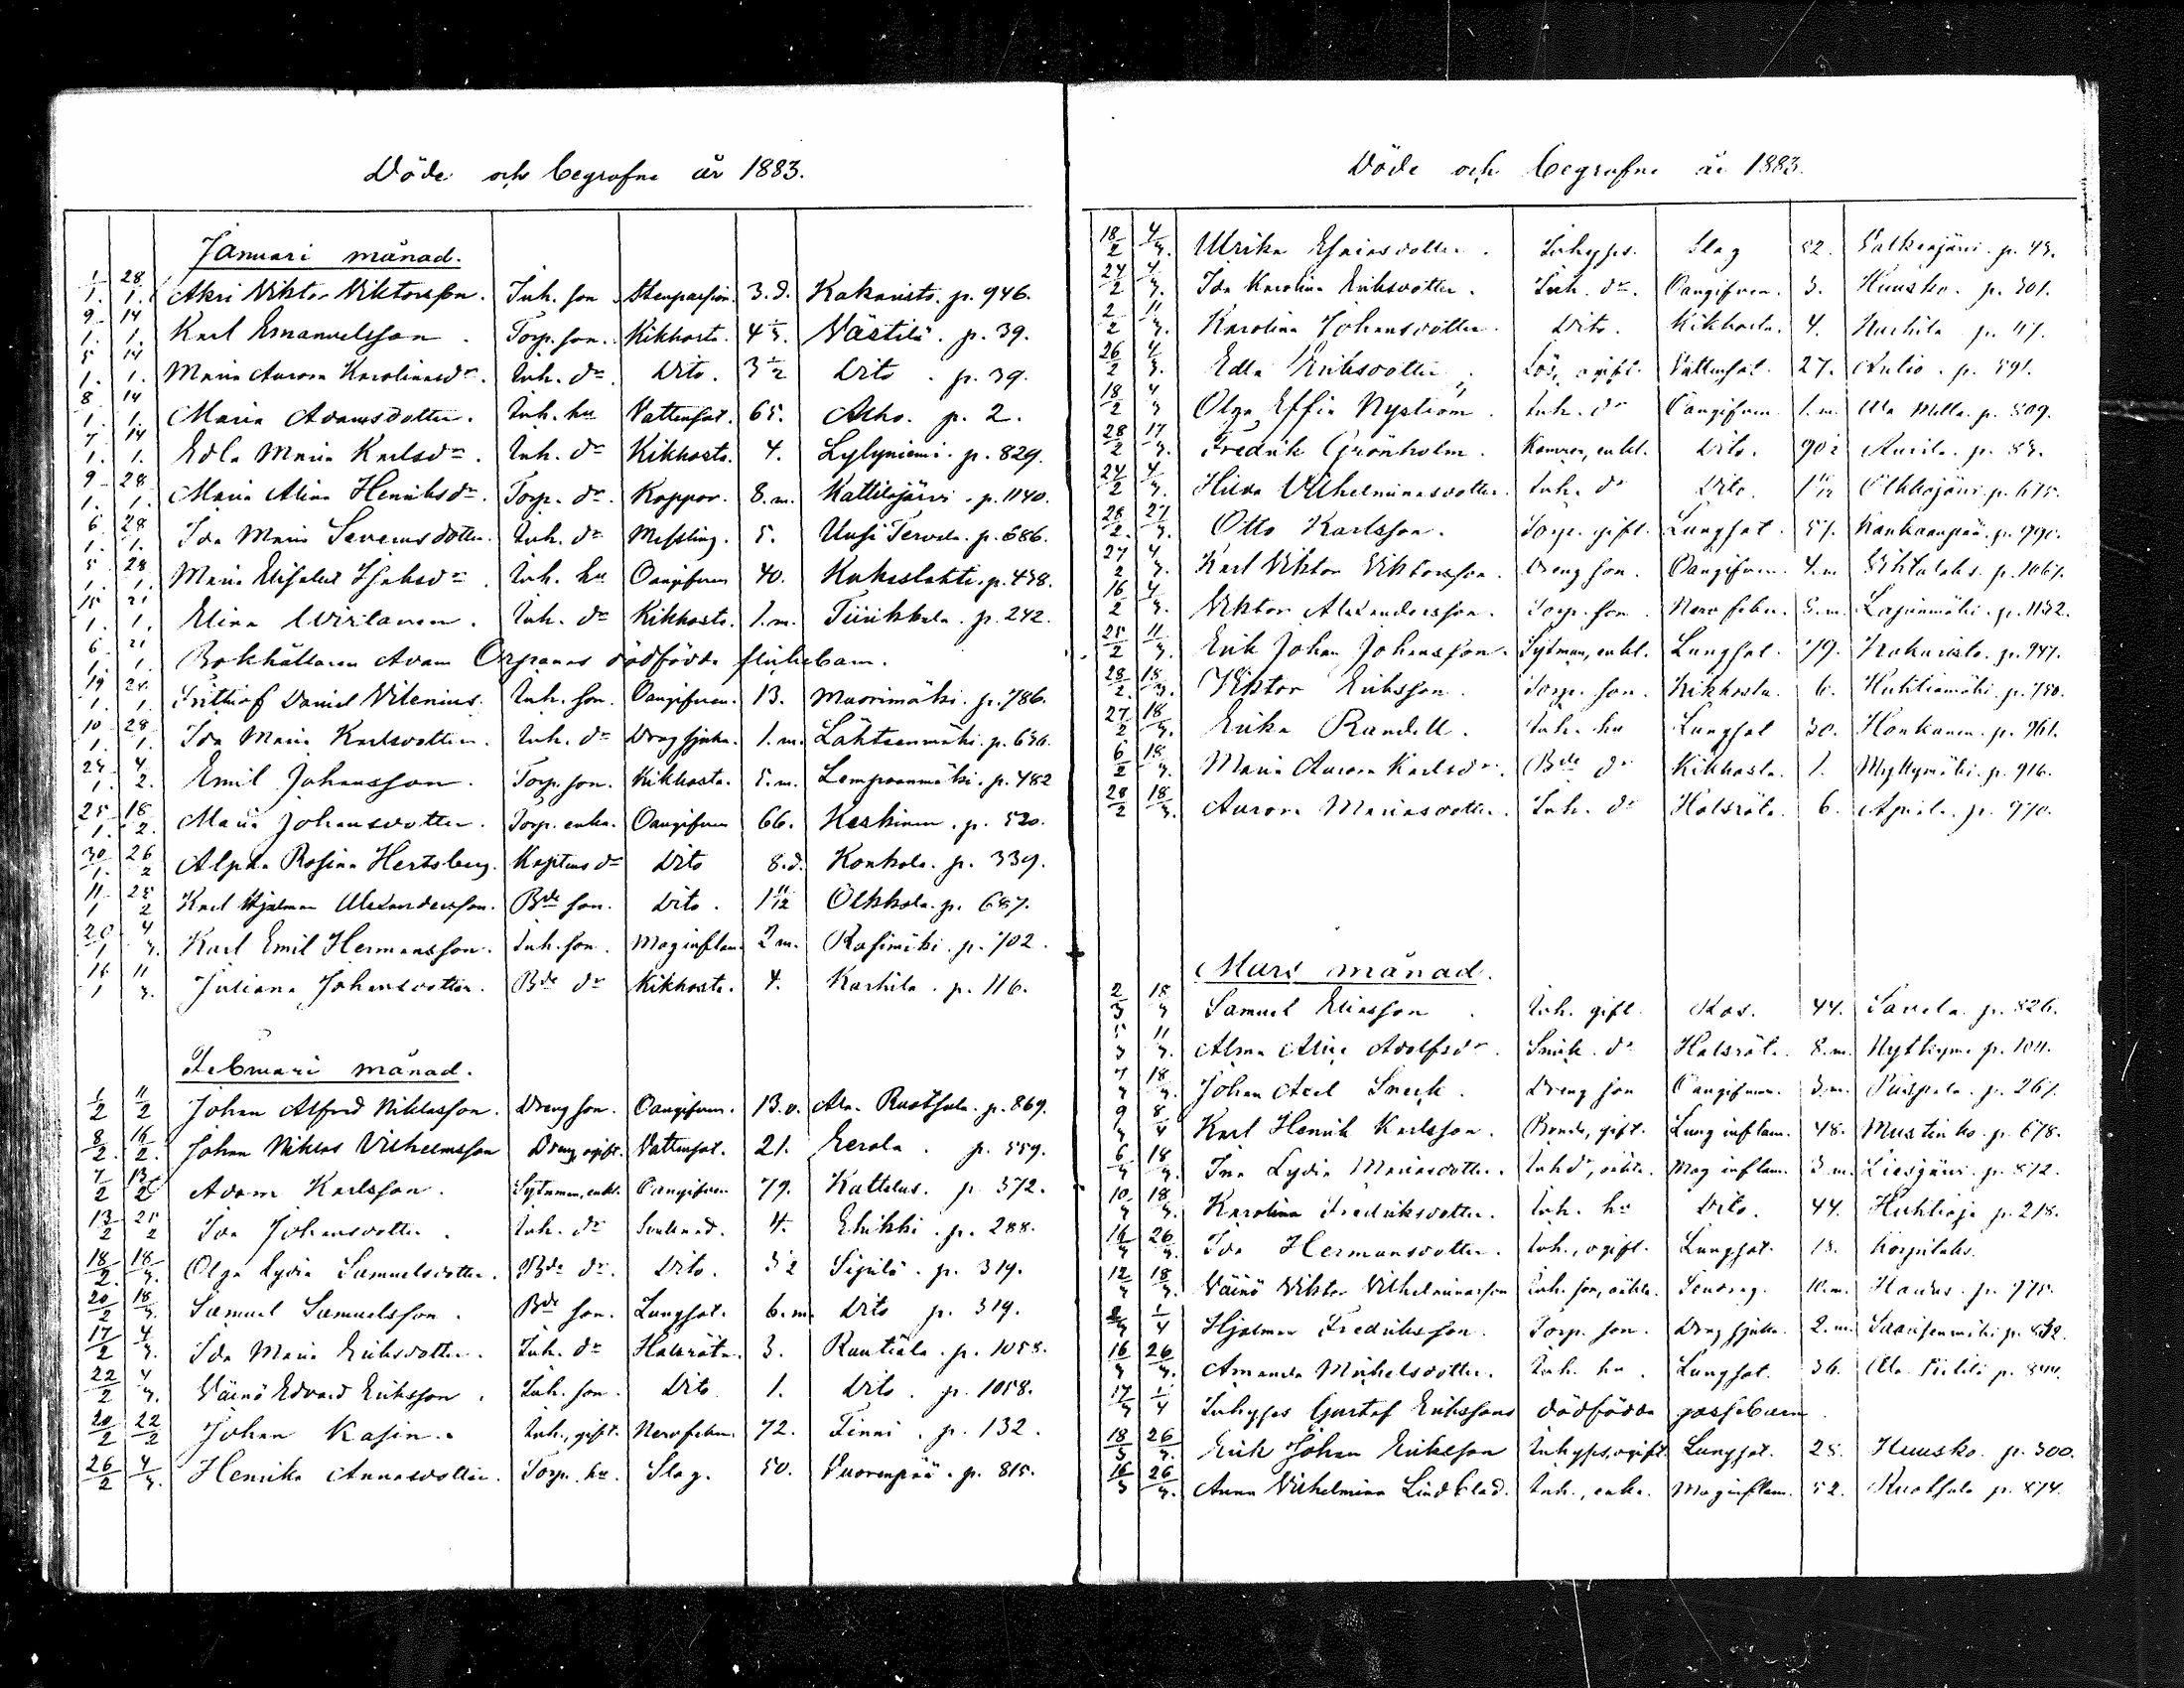 Döde och begrafne år 1883.
Januari månad.
1/1. 28/1. Akri Viktor Viktorsson. Inh. son 3.d. Kakaristo. p. 946.
9/1. 14/1. Karl Emanuelsson. Torp. son. Kikhosta. 4 1/3. Västilä. p. 39.
5/1. 14/1. Maria Aurora Karolinasdr. Inh. dr. Dito. 3 1/2 Dito. p. 39.
8/1. 14/1. Maria Adamsdotter. Inh. hu Vattensot. 65. Arho. p. 2.
7/1. 14/1. Edla Maria Karlsdr. Inh. dr Kikhosta. 4. Lylyniemi. p. 829.
9/1. 28/1. Maria Alina Henriksdr. Torp. dr. Koppor. 8.m. Kattilajärvi. p. 1140.
6/1. 28/1. Ida Maria Severusdotter. Inh. dr Messling. 5. Uusi Tervola. p. 686.
5/1. 28/1. Maria Elisabet Isaksdr. Inh. hu Oangifven 40. p. 458.
15/1. 21/1. Elina Inh. dr Kikhosta. 1.m. Tiirikkala. p. 242.
6/1. 21/1. Bokhållaren Adam Orpanas dödfödda flickebarn.
19/1. 28/1. Frithiof Daniel Vilenius. Inh. son. Oangifven. 13. Muorimäki. p. 786.
10/1. 28/1. Ida Maria Karlsdotter. Inh. dr Dragsjuka. 1.m. Lähteenmäki. p. 656.
24/1. 4/2. Emil Johansson. Torp. son. Kikhosta. 5.m. Lempoonmäki. p. 482
25/1. 18/2. Maria Johansdotter. Torp. enka. Oangifven 66. Keskinen. p. 520.
30/1. 26/2 Alpha Rosina Hertsberg. Kaptens dr Dito 8.d. Konkola. p. 339.
11/1 25/2 Karl Hjalmar Alexandersson. Bde son. Dito. 1 11/12 Olkkola. p. 687.
20/1 4/3. Karl Emil Hermansson. Inh. son. Maginflam. 2 m. Rasimäki. p. 702.
16/1 11/3. Juliana Johansdotter. Bde dr Kikhosta. 4. Karhila. p. 116.
Februari månad.
1/2 11/2 Johan Alfred Niklasson. Dreng son. Oangifven. 13.v. Ala-Ruotsala. p. 869.
8/2. 16/2. Johan Niklas Vilhelmsson Dreng ogift. Vattensot. 21. Eerola. p. 559.
7/2 Adam Karlsson. Sytnman, enkl. Oangifven 79. Kattelus. p. 372.
13/2 25/2 Ida Johansdotter. Inh. dr 4. Ehikki. p. 288.
18/2. 18/3. Olga Lydia Samuelsdotter. Bde dr. Dito. 3 1/2 Sipilä. p. 319.
20/2 18/3. Samuel Samuelsson. Bde son. Lungsot. 6.m. Dito p. 319.
17/2 4/3. Ida Maria Eriksdotter. Inh. dr Halsröta. 3. Rautiala. p. 1058.
22/2 4/3. Väinö Edvard Eriksson. Inh. son. Dito 1. Dito. p. 1058.
20/2 22/2 Johan Kasin. Inh., gift. Nervfeber. 72. Finni. p. 132.
26/2 4/3. Henrika Annasdotter. Torp. hu. Slag. 50. Vuorenpää. p. 815.
Döde och begrafne år 1883.
18/2 4/3. Ulrika Esaiasdotter. Inhyses. Slag 52. Valkeajärvi. p. 43.
24/2 4/3. Ida Karolina Eriksdotter. Inh. dr. Oangifven. 3. Kuusko. p. 301.
2/2 11/3. Karolina Johansdotter. Dito. Kikhosta. 4. Karhila p. 117.
26/2 4/3. Edla Eriksdotter. Lös, ogift. Vattensot. 27. Aulio. p. 591.
18/2 4/3 Olga Effia Nyström. Inh. dr Oangifven. 1.m. Ala Mella. p. 509.
28/2 17/3. Fredrik Grönholm. enkl. Dito. 90 1/2 Aurila. p. 83.
24/2 4/3. Hilda Vilhelminasdotter. Inh. dr Dito. Olkkajärvi. p. 675.
28/2. 27/3. Otto Karlsson. Torp. gift. Lungsot. 51. Kankaanpää. p. 990.
27/2 4/3. Karl Viktor Viktorsson. Dreng son. Oangifven. 4.m. p. 1067.
16/2 4/3. Viktor Alexandersson. Torp. son. Nervfeber. 5.m. Lajunmäki. p. 1132.
25/2 11/3. Erik Johan Johansson. Sytman, enkl. Lungsot. 79. Kakaristo. p. 947.
28/2. 18/3. Viktor Eriksson. Torp. son. Kikhosta. 6. Huhtiamäki. p. 750.
27/2 18/3. Erika Randell. Inh. hu Lungsot 30. Honkanen. p. 961.
6/2 18/3. Maria Aurora Karlsdr. Bde dr Kikhosta. 1. Myllymäki. p. 916.
28/2 18/3. Aurora Mariasdotter. Inh. dr Halsröta. 6. Apiala. p. 970.
Mars månad.
2/3 18/3 Samuel Eliasson. Inh. gift. Ros. 44. Savela. p. 826.
5/3 11/3. Alma Alina Adolfsdr. Smeds. dr Halsröta. 8.m. Nykkyme p. 1011.
7/3 18/3. Johan Axel Sneck. Dreng son Oangifven. 3.m. Piispala. p. 267.
9/3 8/4 Karl Henrik Karlsson. Bonde, gift. Lunginflam. 48. Mustinko. p. 678.
6/3 18/3. Ina Lydia Mariasdotter. Inh dr, oäkta. Maginflam. 3 m. Liesjärvi. p. 872.
10/3 18/3. Karolina Fredriksdotter. Inh. hu Dito. 44. Huhtioja p. 218.
16/3 26/3. Ida Hermansdotter. Inh., ogift. Lungsot. 18. Korpilaks.
12/3 18/3. Väinö Viktor Vilhelminasson Inh. son, oäkta. Sendrag. 10.m. p. 975.
1/4 Hjalmar Fredriksson. Torp. son. Dragsjuka. 2.m. Saarisenmäki p. 432.
16/3 26/3. Amanda Mikkelsdotter. Inh. hu. Lungsot. 36. Ala p. 844.
17/3 1/4 Inhyses Gustaf Erikssons dödfödda gossebarn.
18/3 26/3. Erik Johan Eriksson Inhyses, ogift. Lungsot. 25. Kuusko. p. 300.
16/3 26/3. Anna Vilhelmina Lindblad. Inh., enka. Maginflam. 52. Ruotsala p. 874.